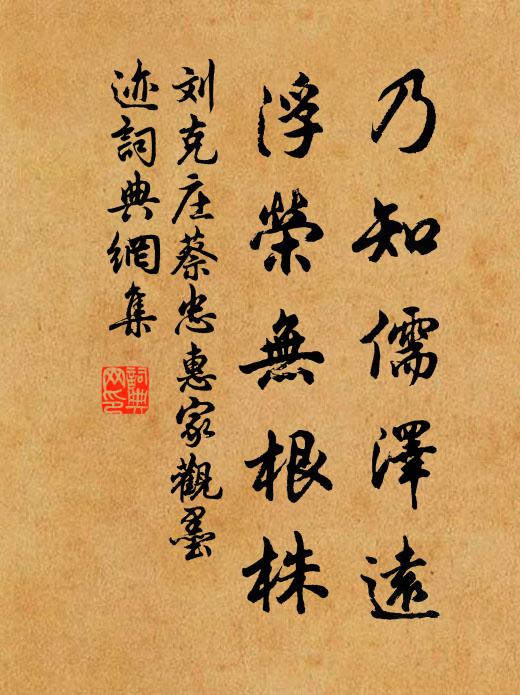 乃知儒澤遠
浮榮無根株
刘克庄蔡忠惠家觀墨
迹詞典網集
詞典
网印